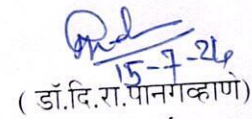 15-7-24
( डॉ.दि.रा.पानगव्हाणे)